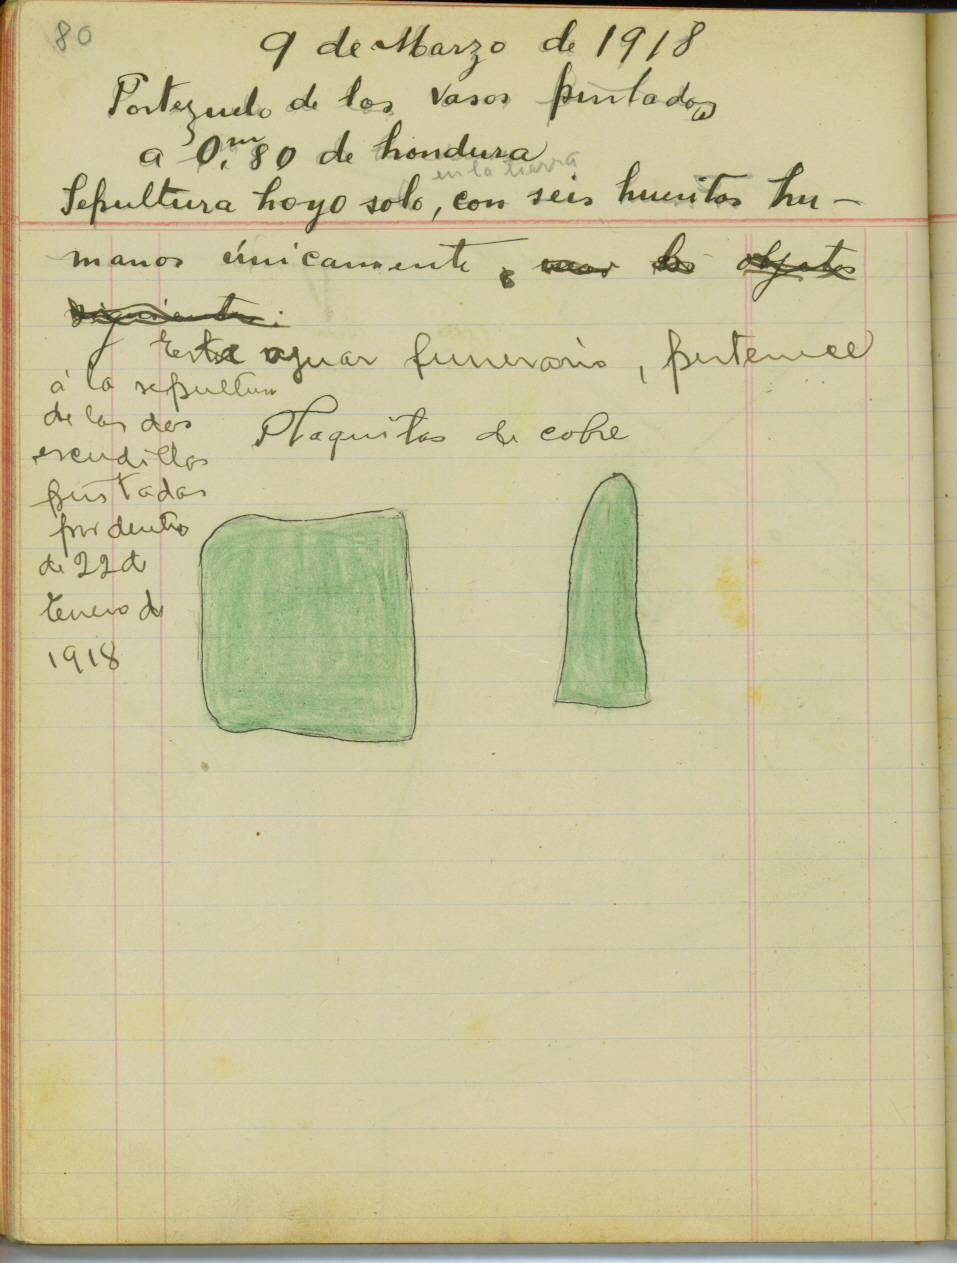 80
9 de Marzo de 1918
Portezuelo de los vasos pintados
a 0,m 80 de hondura
en la tierra
Sepultura hoyo solo, con seis huesitos hu-
manos únicamente, mas los objetos
siguientes:
Este ajuar funerario, pertenece
á la sepultura
de las dos
escudillas
pintadas
por dentro
de 22 de
Enero de
1918
Plaquitas de cobre